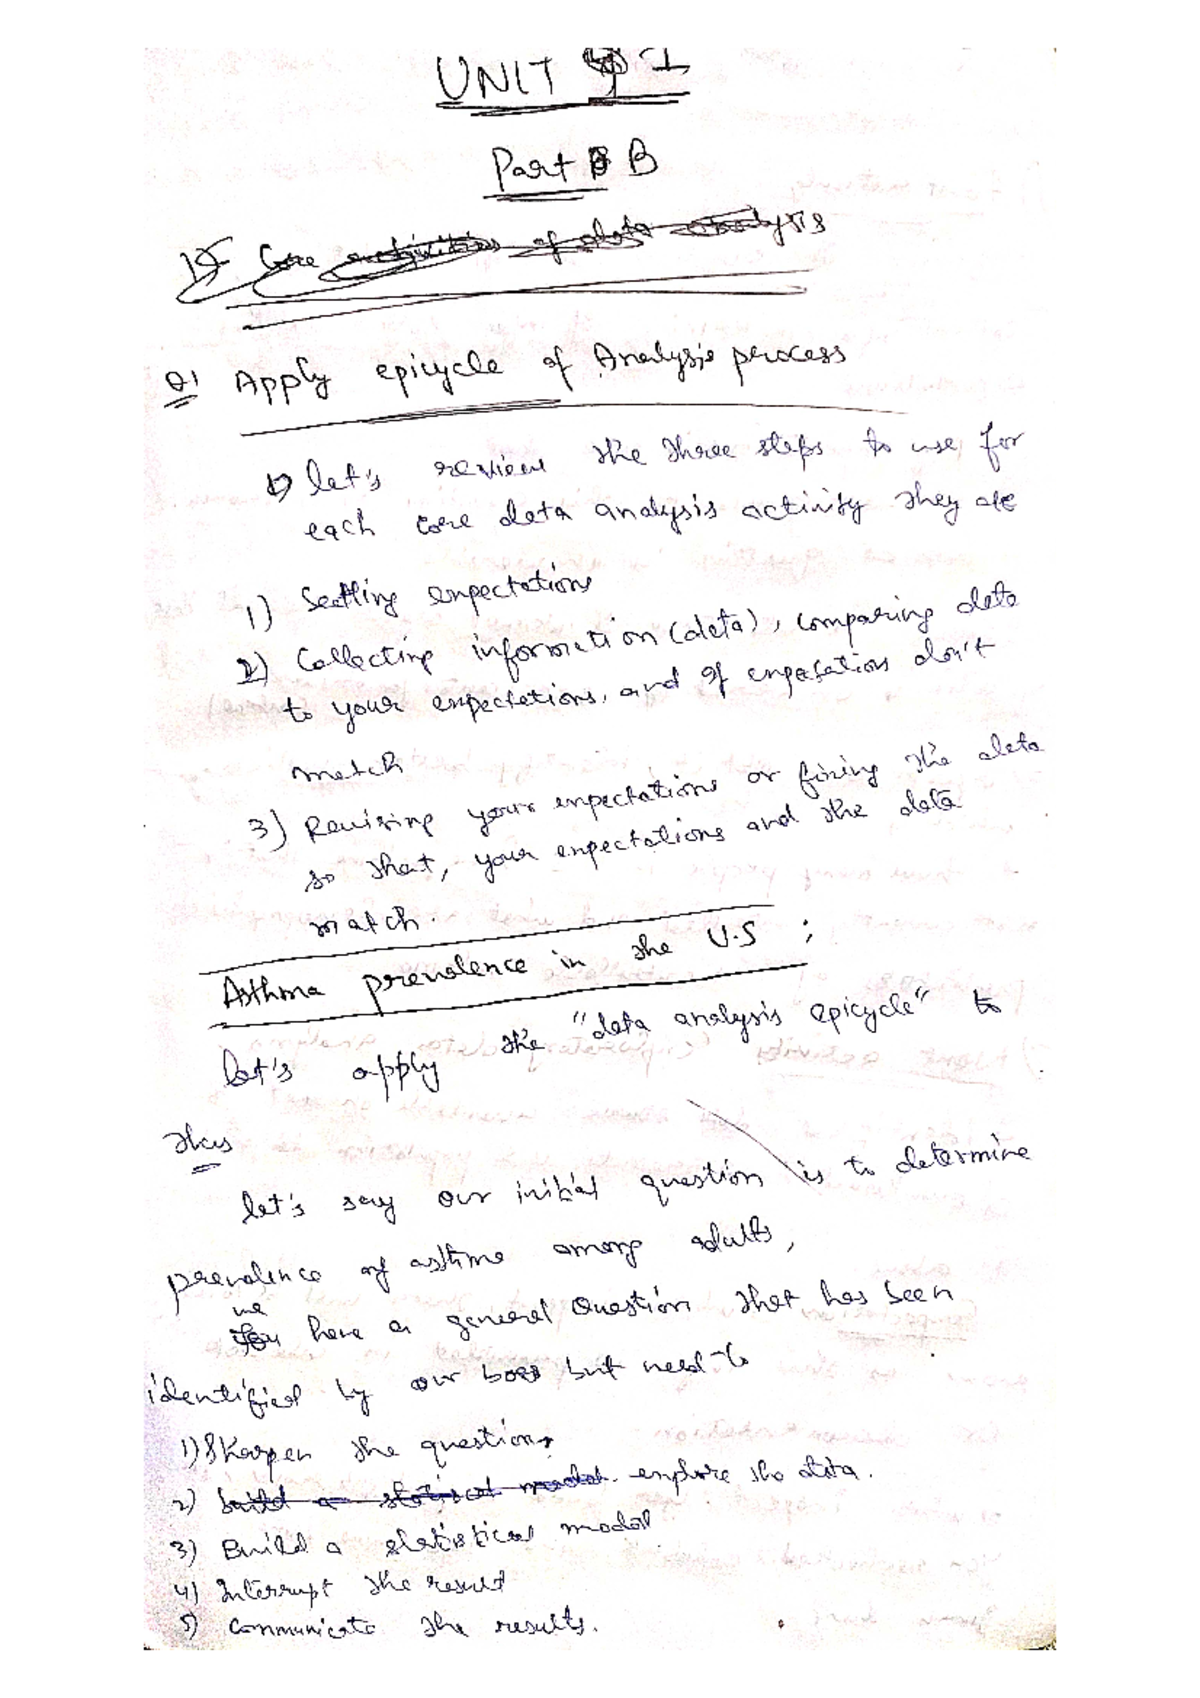 UNIT I
Part B
1) Core activities of data analysis
Q1 Apply epicycle of Analysis process
let's review the three steps to use for
each core data analysis activity they are
1) Seetling expectations
2) Collecting information (data), comparing data
to your expectations, and if expectations don't
match
3) Revising your expectations or fixing the data
so that, your expectations and the data
match.
Asthma prevalence in the U.S ;
let's apply the "data analysis epicycle" to
this
let's say our initial question is to determine
prevalence of asthma among adults,
we have a general Question that has been
identified by our boss but need to
1) Sharpen the question,
2) build a statistical model. explore the data.
3) Build a statistical model
4) Interrupt the result
5) Communicate the results.